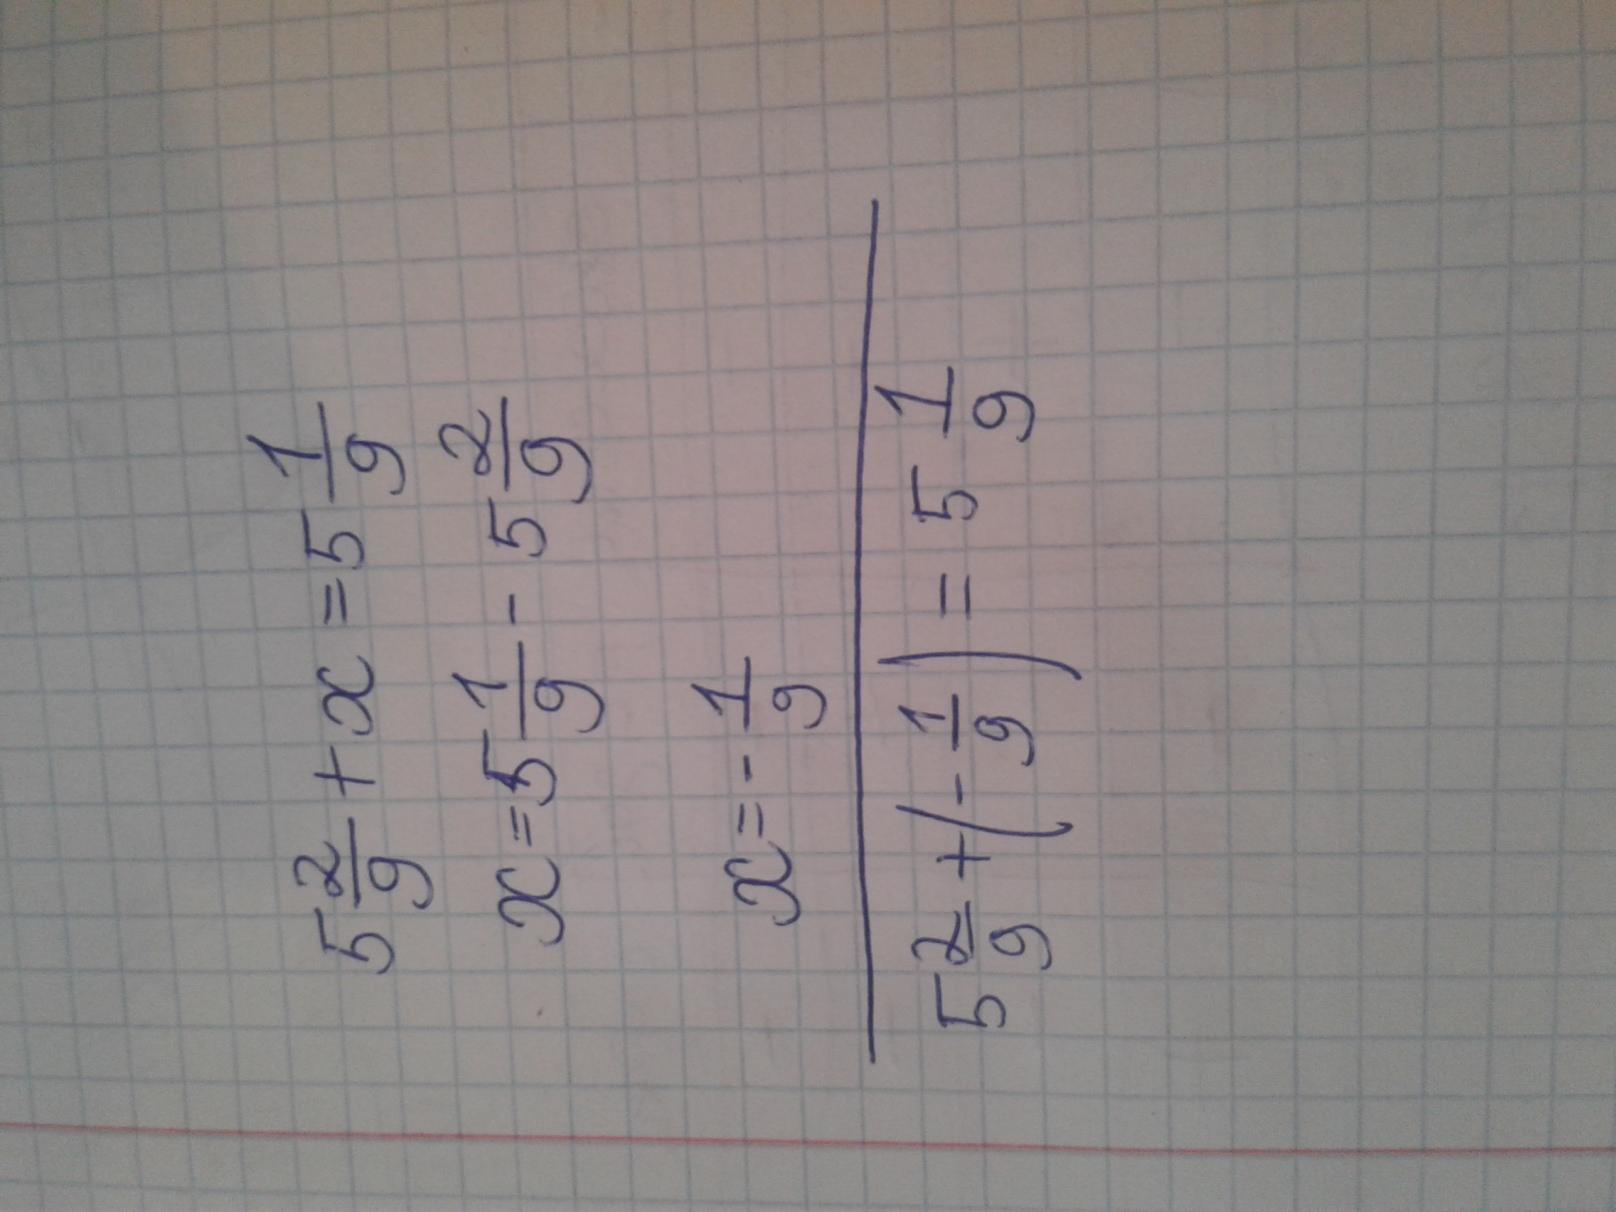 5 2/9 + x = 5 1/9
x = 5 1/9 - 5 2/9
x = - 1/9
5 2/9 + (- 1/9) = 5 1/9